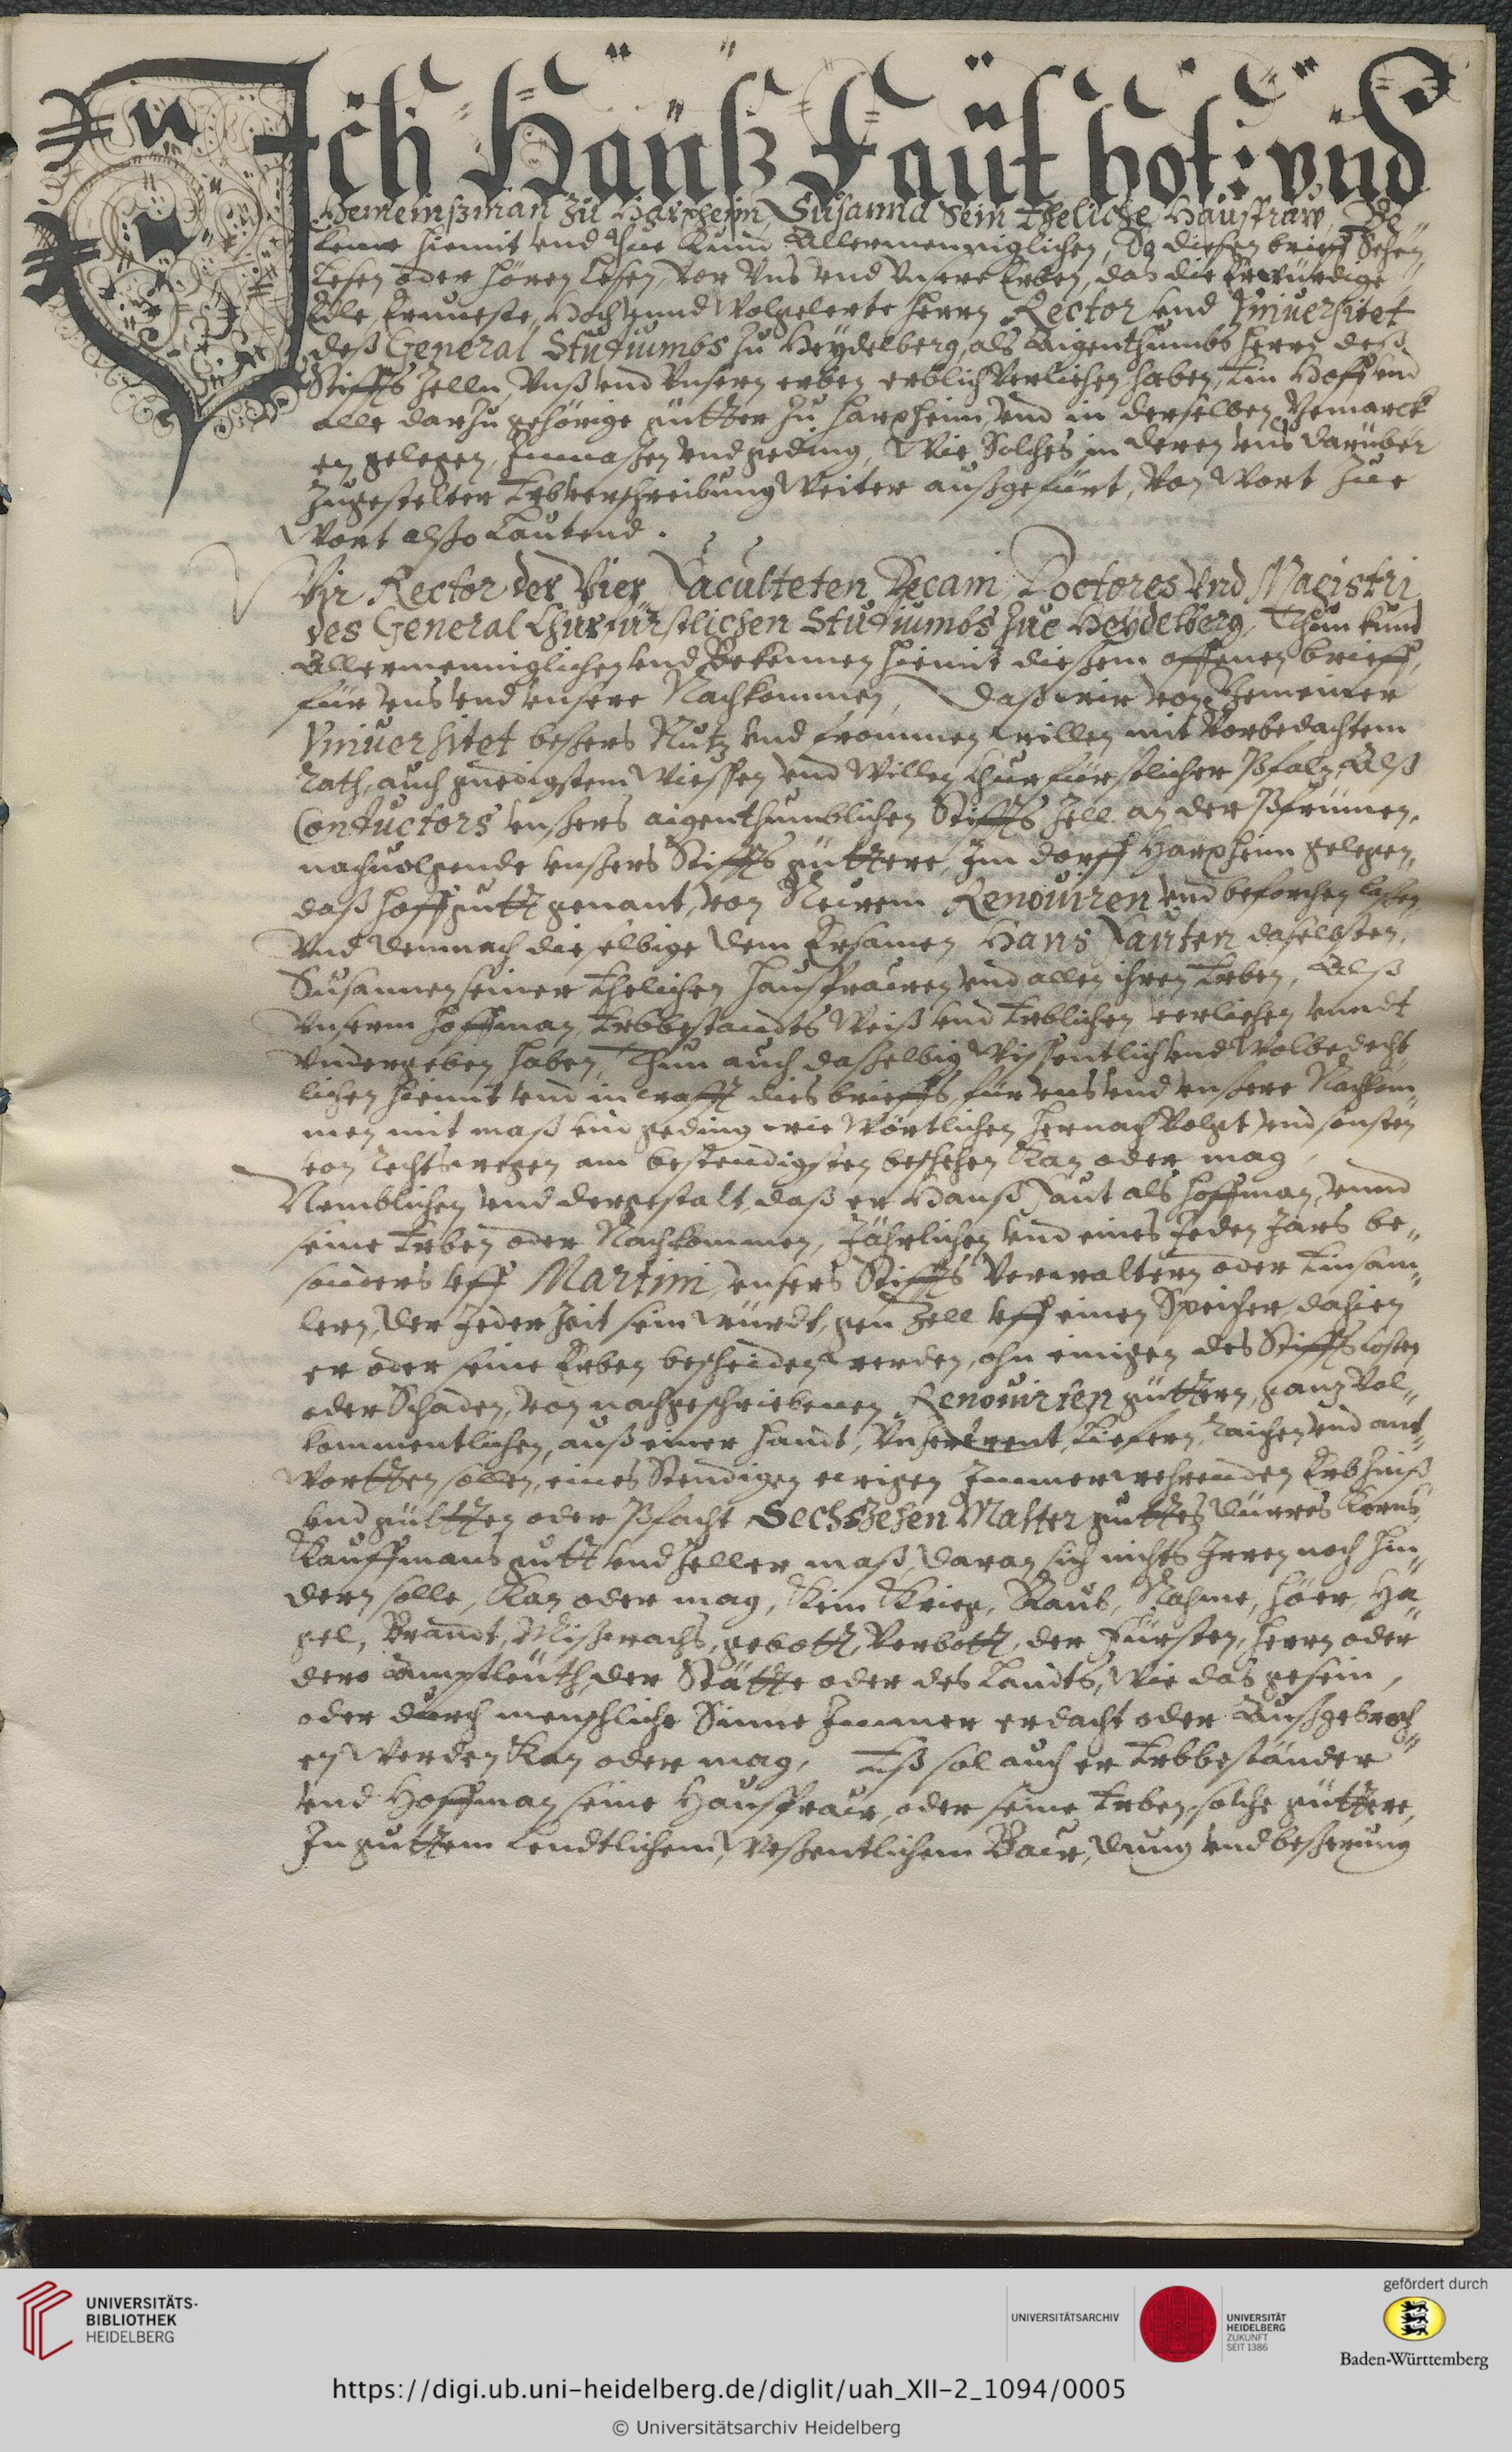 Ich Hanß Faut hof: vnd
Gemeinßman zu Harxheim, Susanna sein Eheliche Haußfraw, Be„
kenne hiemit vnd thue kund Allermenniglichen, So diesen brieff Sehen,
Lesen oder hören Lesen, vor vns vnd vnsere Erben, das die Erwürdige
Edle, Ernueste, Hoch vnnd Wolgelerte herrn Rector vnd Vniuersitet
deß General Studiumbs zu Heydelberg, als Aigenthumbs herrn deß
Stiffts Zelln, Vnß vnd Vnsern erben erblich verliehen haben, Ein Hoff vnd
alle darzu gehörige gütter zu Harxheim, vnd in derselben Gemarck
en gelegen, Inmaßen vnd geding, Wie Solches in deren vns darüber
zugestelter Erbverschreibung Weiter außgefürt, Von Wort zue
Wort also Lautend.
Wir Rector der Vier Faculteten Decani, Doctores vnd Magistri
des General Churfürstlichen Studiumbs zue Heydelberg, Thun kund
Allermenniglichen vnd Bekennen hiemit dießem offenen brieff,
für vns vnd vnsere Nachkommen, Daß wir von Gemeiner
Vniuersitet beßers Nutz vnd frommen willen mit Vorbedachtem
Rath, auch gnedigstem Wiessen vnd Willen Churfürstlicher Pfalz, Alß
Conductors vnsers aigenthumblichen Stiffts Zell an der Pfrimen,
nachuolgende vnsers Stiffts güttere, Im dorff Harxheim gelegen,
daß hoffgutt genant, von Neuem Renouiren vnd beforchen laßen,
Vnd Demnach dieselbige dem Ersamen Hans Fauten daselbsten,
Susannen seiner Ehelichen haußfrawen vnd allen ihren Erben, Alß
Vnserm hoffman, Erbbestandts Weiß vnd Erblichen verliehen vnndt
Vndergeben haben, Thun auch dasselbig Wissentlich vnd Wolbedecht
lichen hiemit vnd in crafft dis brieffs, für vns vnd vnsere Nachkom„
men, mit maß vnd geding wie Wörtlichen hernach Volgt, vnd sonsten
von Rechtswegen am bestendigsten beschehen kan oder mag,
Nemblichen vnd dergestalt, daß er Hanß Faut als hoffman, vnnd
seine Erben oder Nachkommen, Jährlichen vnd eines Jeden Jars be„
sonders vff Martini, vnsers Stiffts Verwaltern oder Einsam„
lern, der Jeder Zeit sein würdt, gen Zell vff einen Speicher, dahien
er oder seine Erben bescheiden werden, ohn einigen des Stiffts costen
oder Schaden, von nachgeschriebenen Renouirten güttern, ganz Vol„
kommentlichen, auß einer handt, Vnzertrent, Liefern, Raichen vnd ant„
wortten sollen, eines Stendigen ewigen Immerwehrenden Erbzinß
vnd gültten oder Pfacht Sechszehen Malter guttes dürres Korns,
Kauffmans gutt vnd Zeller maß, daran sich nichts Irren noch hin„
dern solle, Kan oder mag, Kein Krieg, Raub, Nahme, höer, Ha„
gel, Brandt, Mißwachs, gebott, Verbott, der Fürsten, herrn oder
dero Amptleuth, der Stätte oder des Landts, Wie das gesein,
oder durch menschliche Sinne Immer erdacht oder Außgebroch„
en Werden Kan oder mag, Eß sol auch er Erbbeständer
vnd Hoffman, seine Haußfraw, oder seine Erben, solche güttere,
In guttem Landtlichem, Weßentlichem Baw, dung vnd beßerung
UNIVERSITÄTS-
BIBLIOTHEK
HEIDELBERG
UNIVERSITÄTSARCHIV
UNIVERSITÄT
HEIDELBERG
ZUKUNFT
SEIT 1386
gefördert durch
Baden-Württemberg
https://digi.ub.uni-heidelberg.de/diglit/uah_XII-2_1094/0005
© Universitätsarchiv Heidelberg